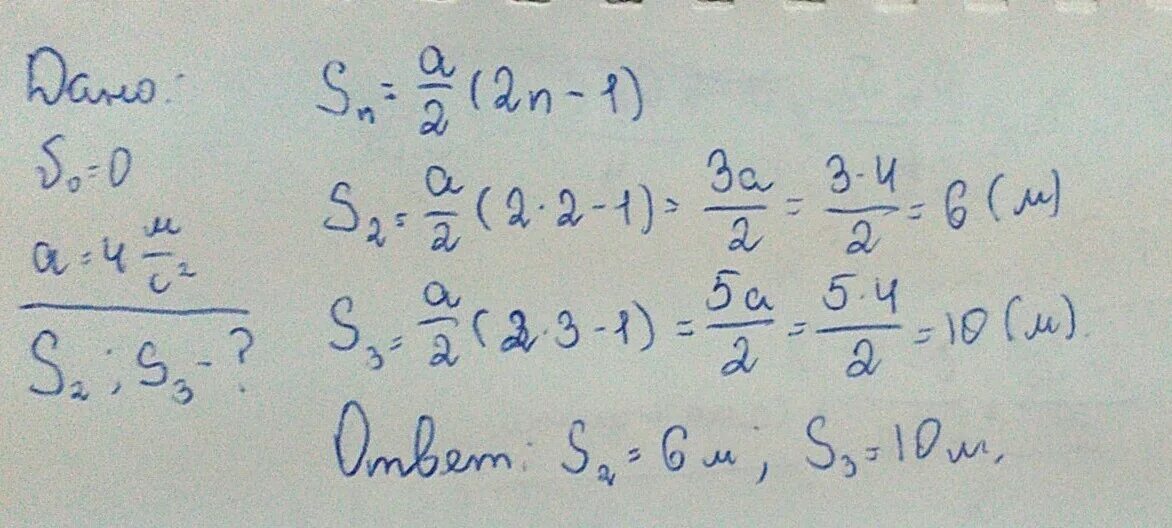 Дано:
S₀=0
a=4 м/с²
S₂; S₃-?
Sₙ= a/2 (2n-1)
S₂= a/2 (2·2-1)= 3a/2 = 3·4/2 = 6 (м)
S₃= a/2 (2·3-1) = 5a/2 = 5·4/2 = 10 (м).
Ответ: S₂=6м; S₃=10м.